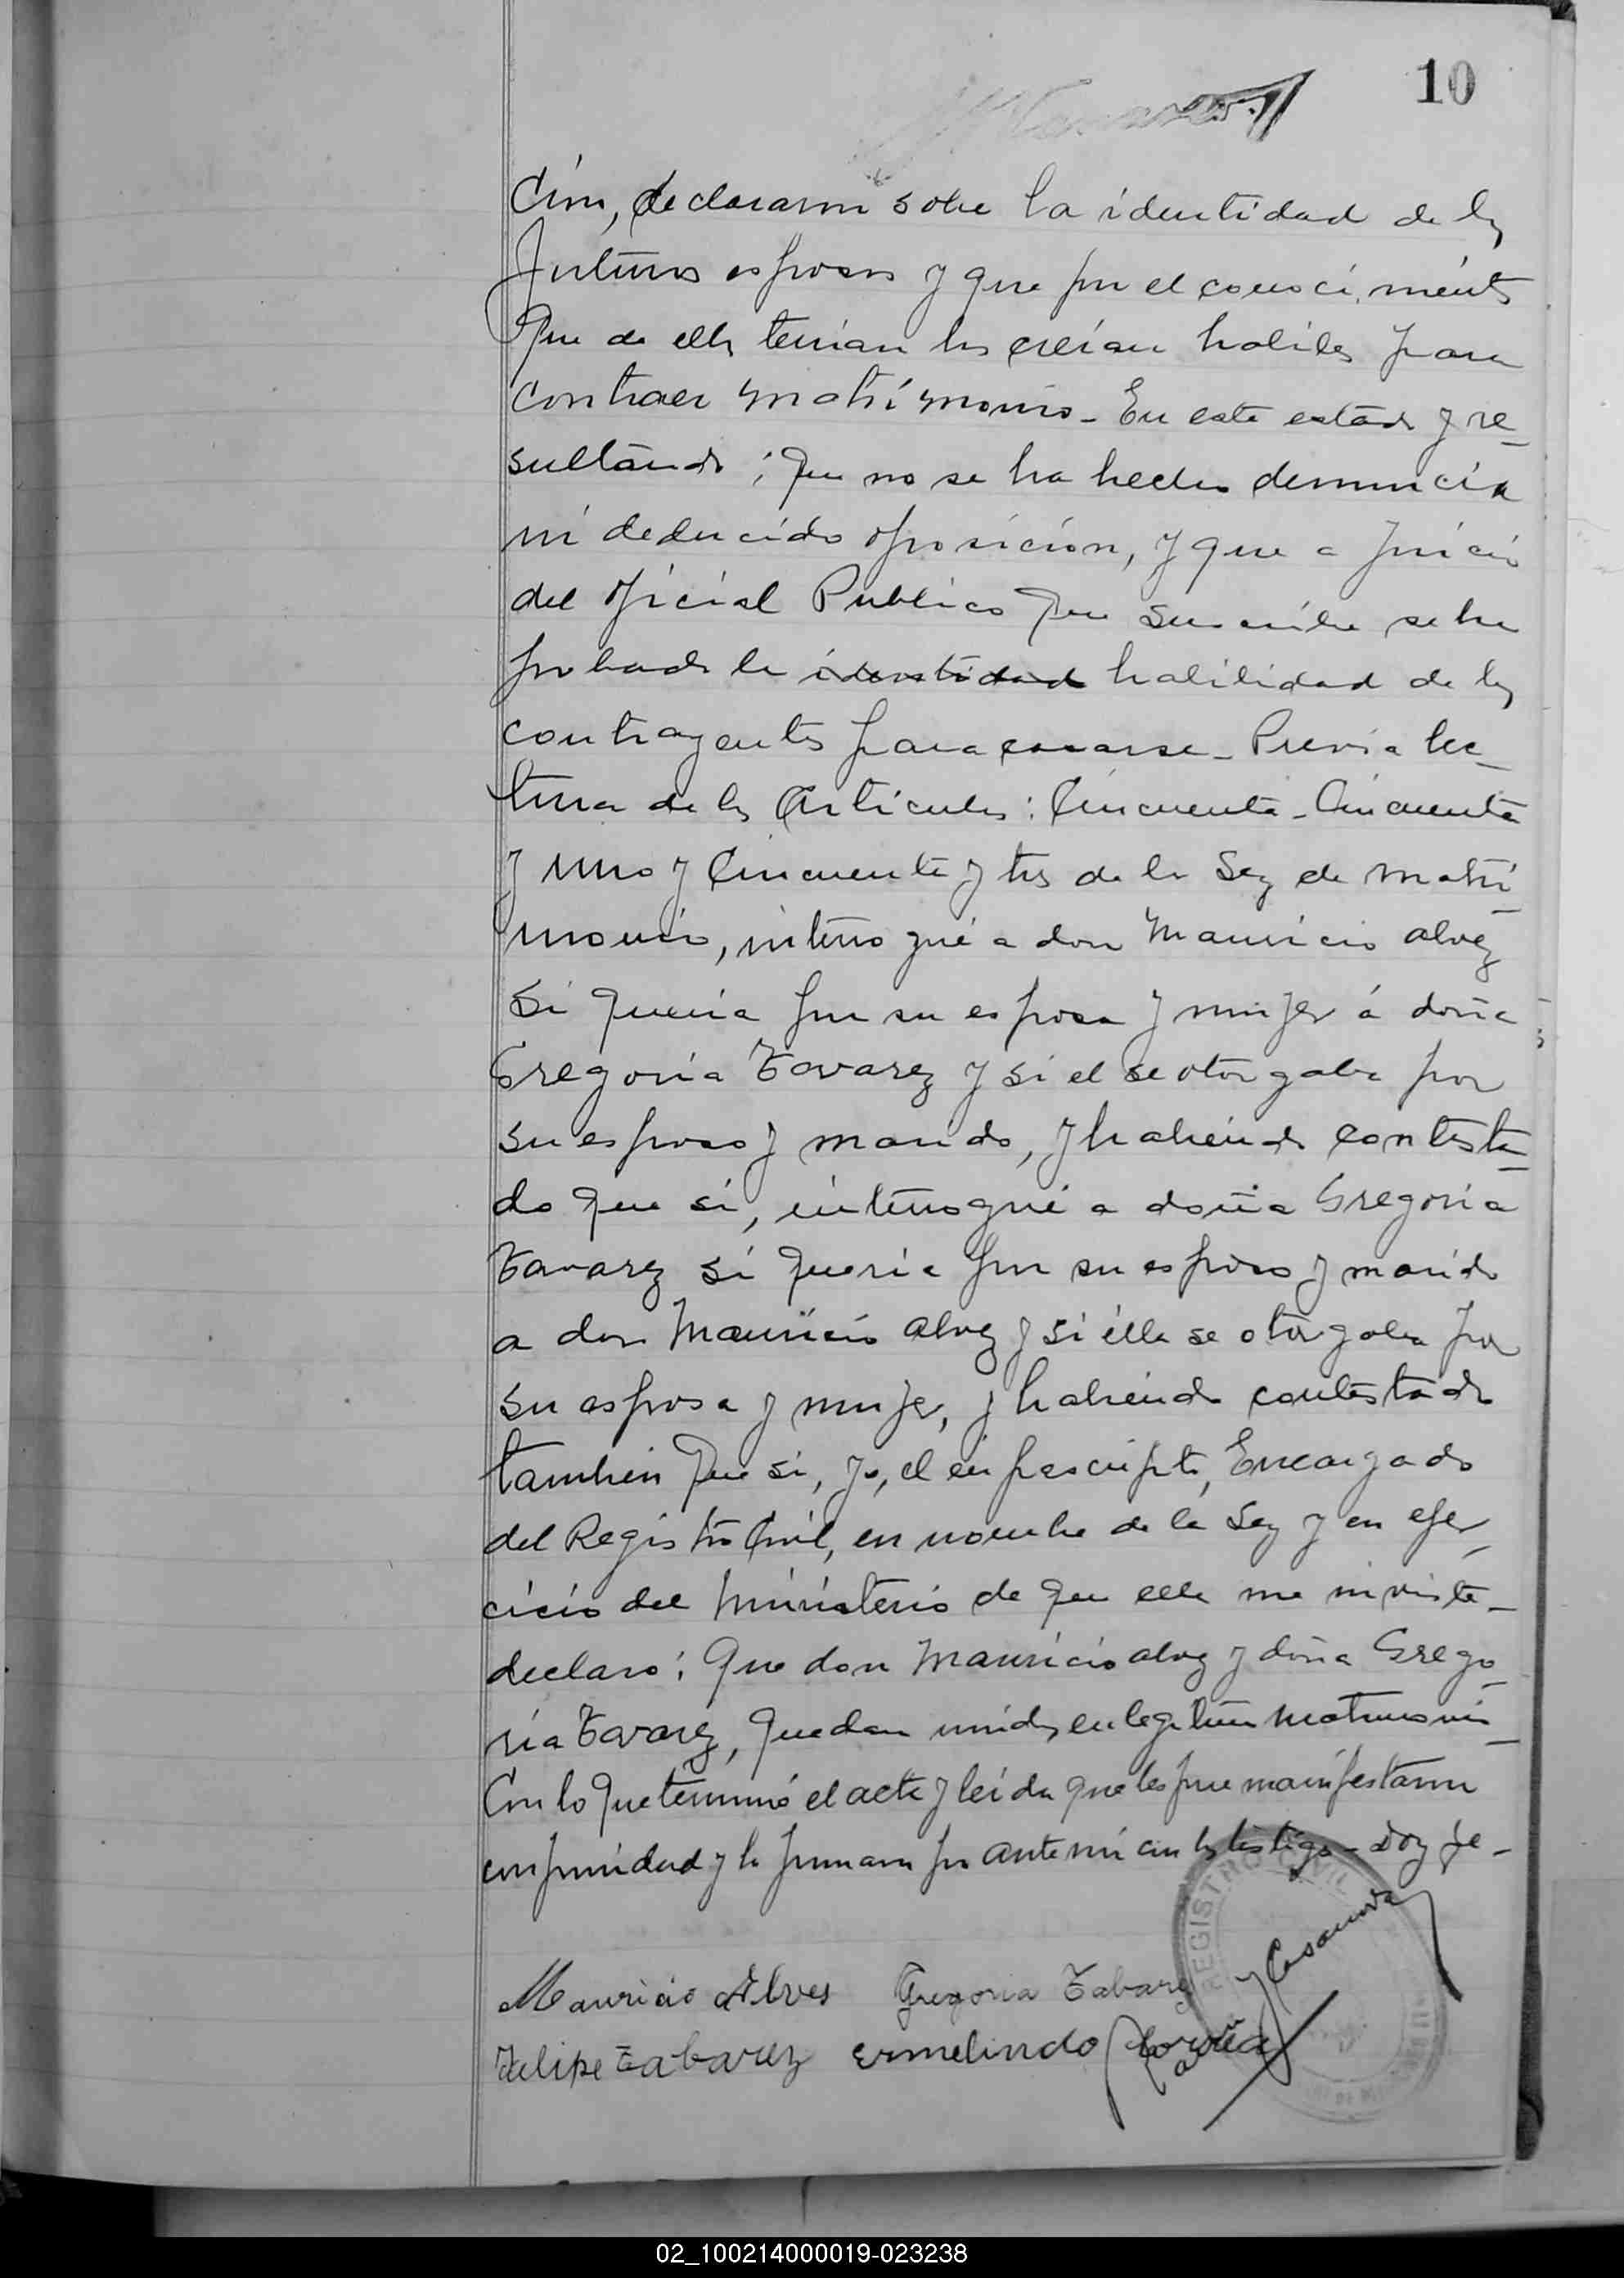 10
ción, declararon sobre la identidad de los
futuros esposos y que por el conocimiento
que de ellos tenian los creían habiles para
contraer matrimonio - En este estado y re-
sultando; que no se ha hecho denuncia
ni deducido oposición, y que a juicio
del oficial Publico que suscribe se ha
probado la identidad habilidad de los
contrayentes para casarse - Previa lec-
tura de los Articulos: Cincuenta - Cincuenta
y uno y Cincuenta y tres de la Ley de matri-
monio, interrogué a don Mauricio Alvez
si queria por su esposa y mujer á doña
Gregoria Tavarez y si el se otorgaba por
su esposo y marido, y habiendo contesta-
do que si, interrogué a doña Gregoria
Tavarez si queria por su esposo y marido
a don Mauricio Alvez y si élla se otorgaba por
su esposa y mujer, y habiendo contestado
tambien que si, yo, el infrascripto, Encargado
del Registro Civil, en nombre de la Ley y en ejer-
cicio del ministerio de que ella me inviste -
declaro: Que don Mauricio Alvez y doña Grego-
ria Tavarez, quedan unidos en legitimo matrimonio -
Con lo que terminó el acto y leida que les fue manifestaron
conformidad y la firmaron por ante mí con los testigos - Doy fe -
Mauricio Alves Gregoria Tabarez
Felipe Tabarez Ermelindo Correa
y Casanova
REGISTRO CIVIL
02_100214000019-023238